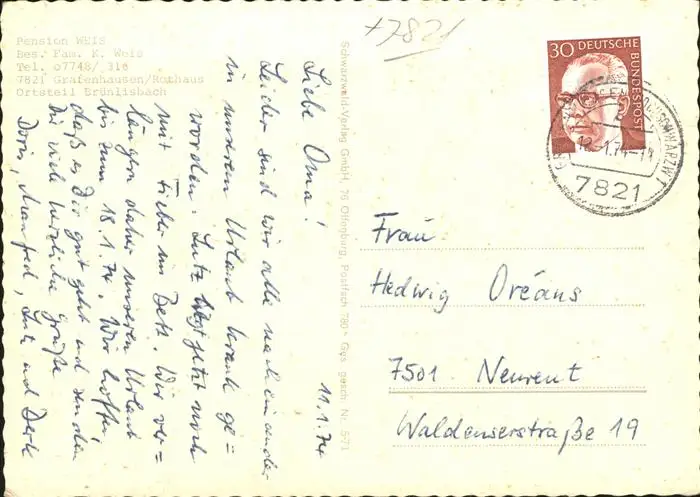 Pension WEIS
Bes. Fam. K. Weis
Tel. 07748/ 316
7821 Grafenhausen/Rothaus
Ortsteil Brünlisbach
+7821
30 DEUTSCHE
BUNDESPOST
12.-1.74-14
7821
11.1.74
Liebe Oma!
Leider sind wir alle nacheinander
in unserem Urlaub krank ge=
worden. Lutz liegt jetzt noch
mit Fieber im Bett. Wir ver=
längern daher unseren Urlaub
bis zum 18.1.74. Wir hoffen,
daß es Dir gut geht und senden
Dir viele herzliche Grüße
Doris, Manfred, Lutz und Dirk
Schwarzwald-Verlag GmbH, 76 Offenburg, Postfach 780 Ges. gesch. Nr. 5/71
Frau
Hedwig Oréans
7501 Neureut
Waldenserstraße 19